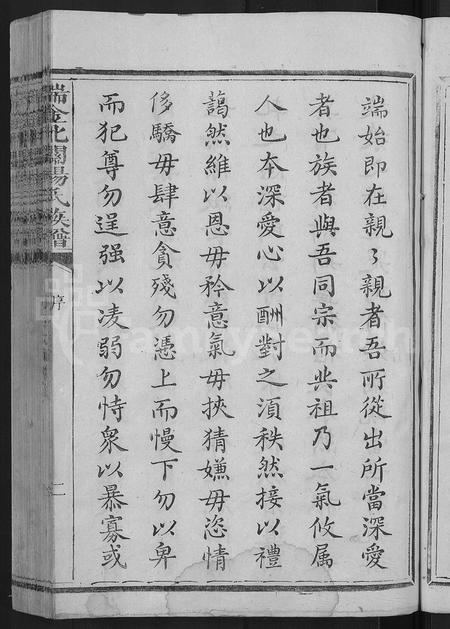 端始即在親々親者吾所從出所當深愛
者也族者與吾同宗而共祖乃一氣攸属
人也本深愛心以酬對之湏秩然接以禮
藹然維以恩毋矜意氣毋挾猜嫌毋恣情
侈驕毋肆意貪殘勿憑上而慢下勿以卑
而犯尊勿逞强以凌弱勿恃衆以暴寡或
瑞金北關楊氏族譜
序
二
FamilySearch